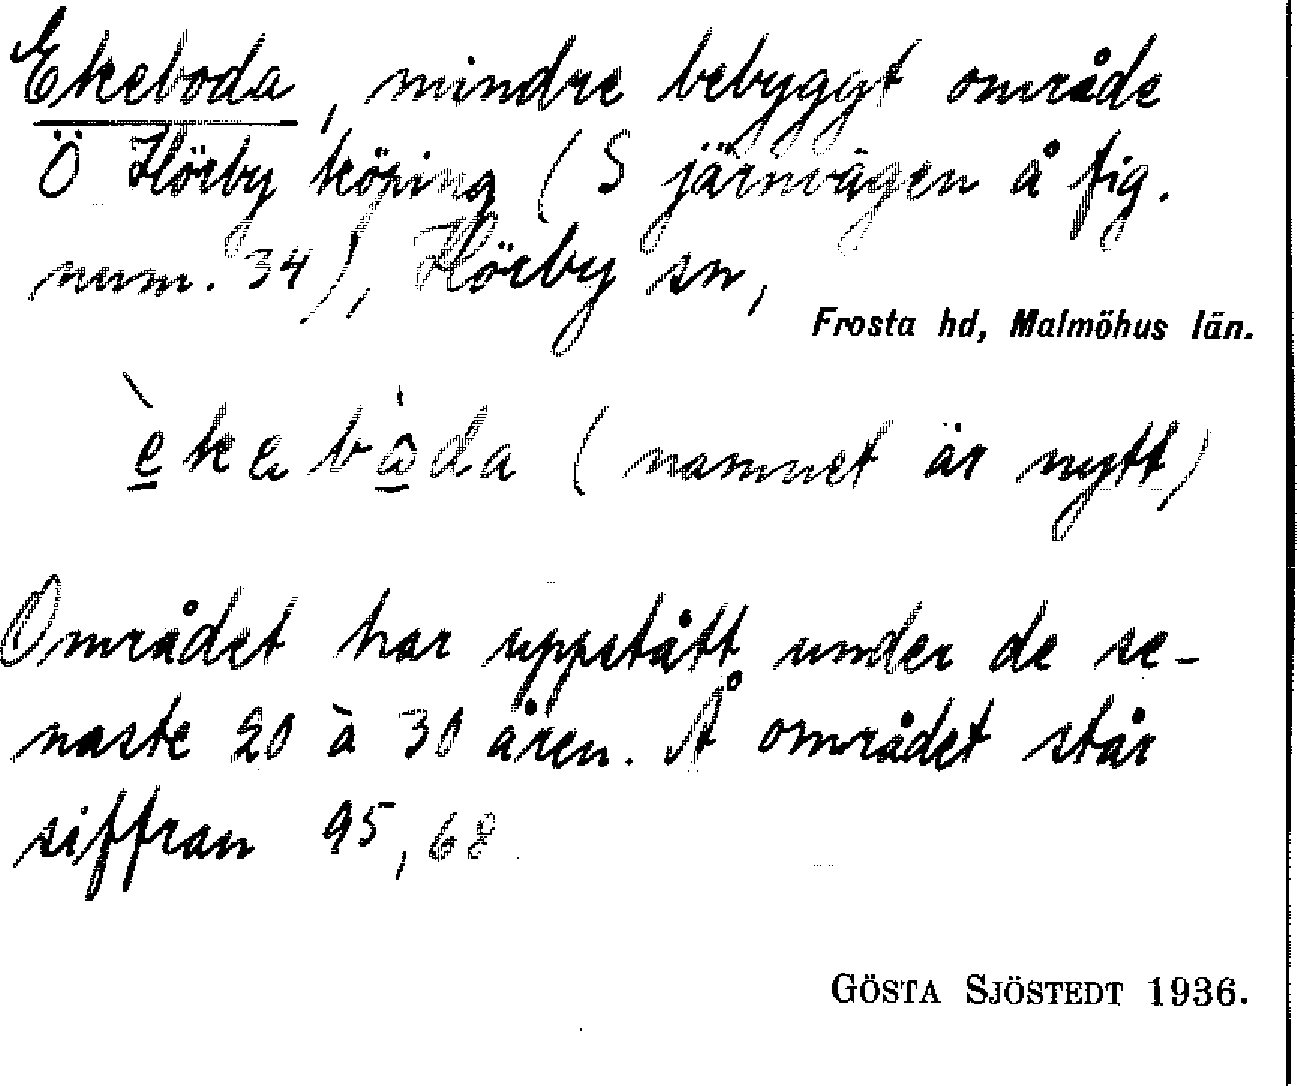 Ekeboda, mindre bebyggt område
Ö Hörby köping (S järnvägen å fig.
num. 34), Hörby sn,
Frosta hd, Malmöhus län.
(namnet är nytt)
Området har uppstått under de se-
naste 20 à 30 åren. Å området står
siffran 95,68
GÖSTA SJÖSTEDT 1936.